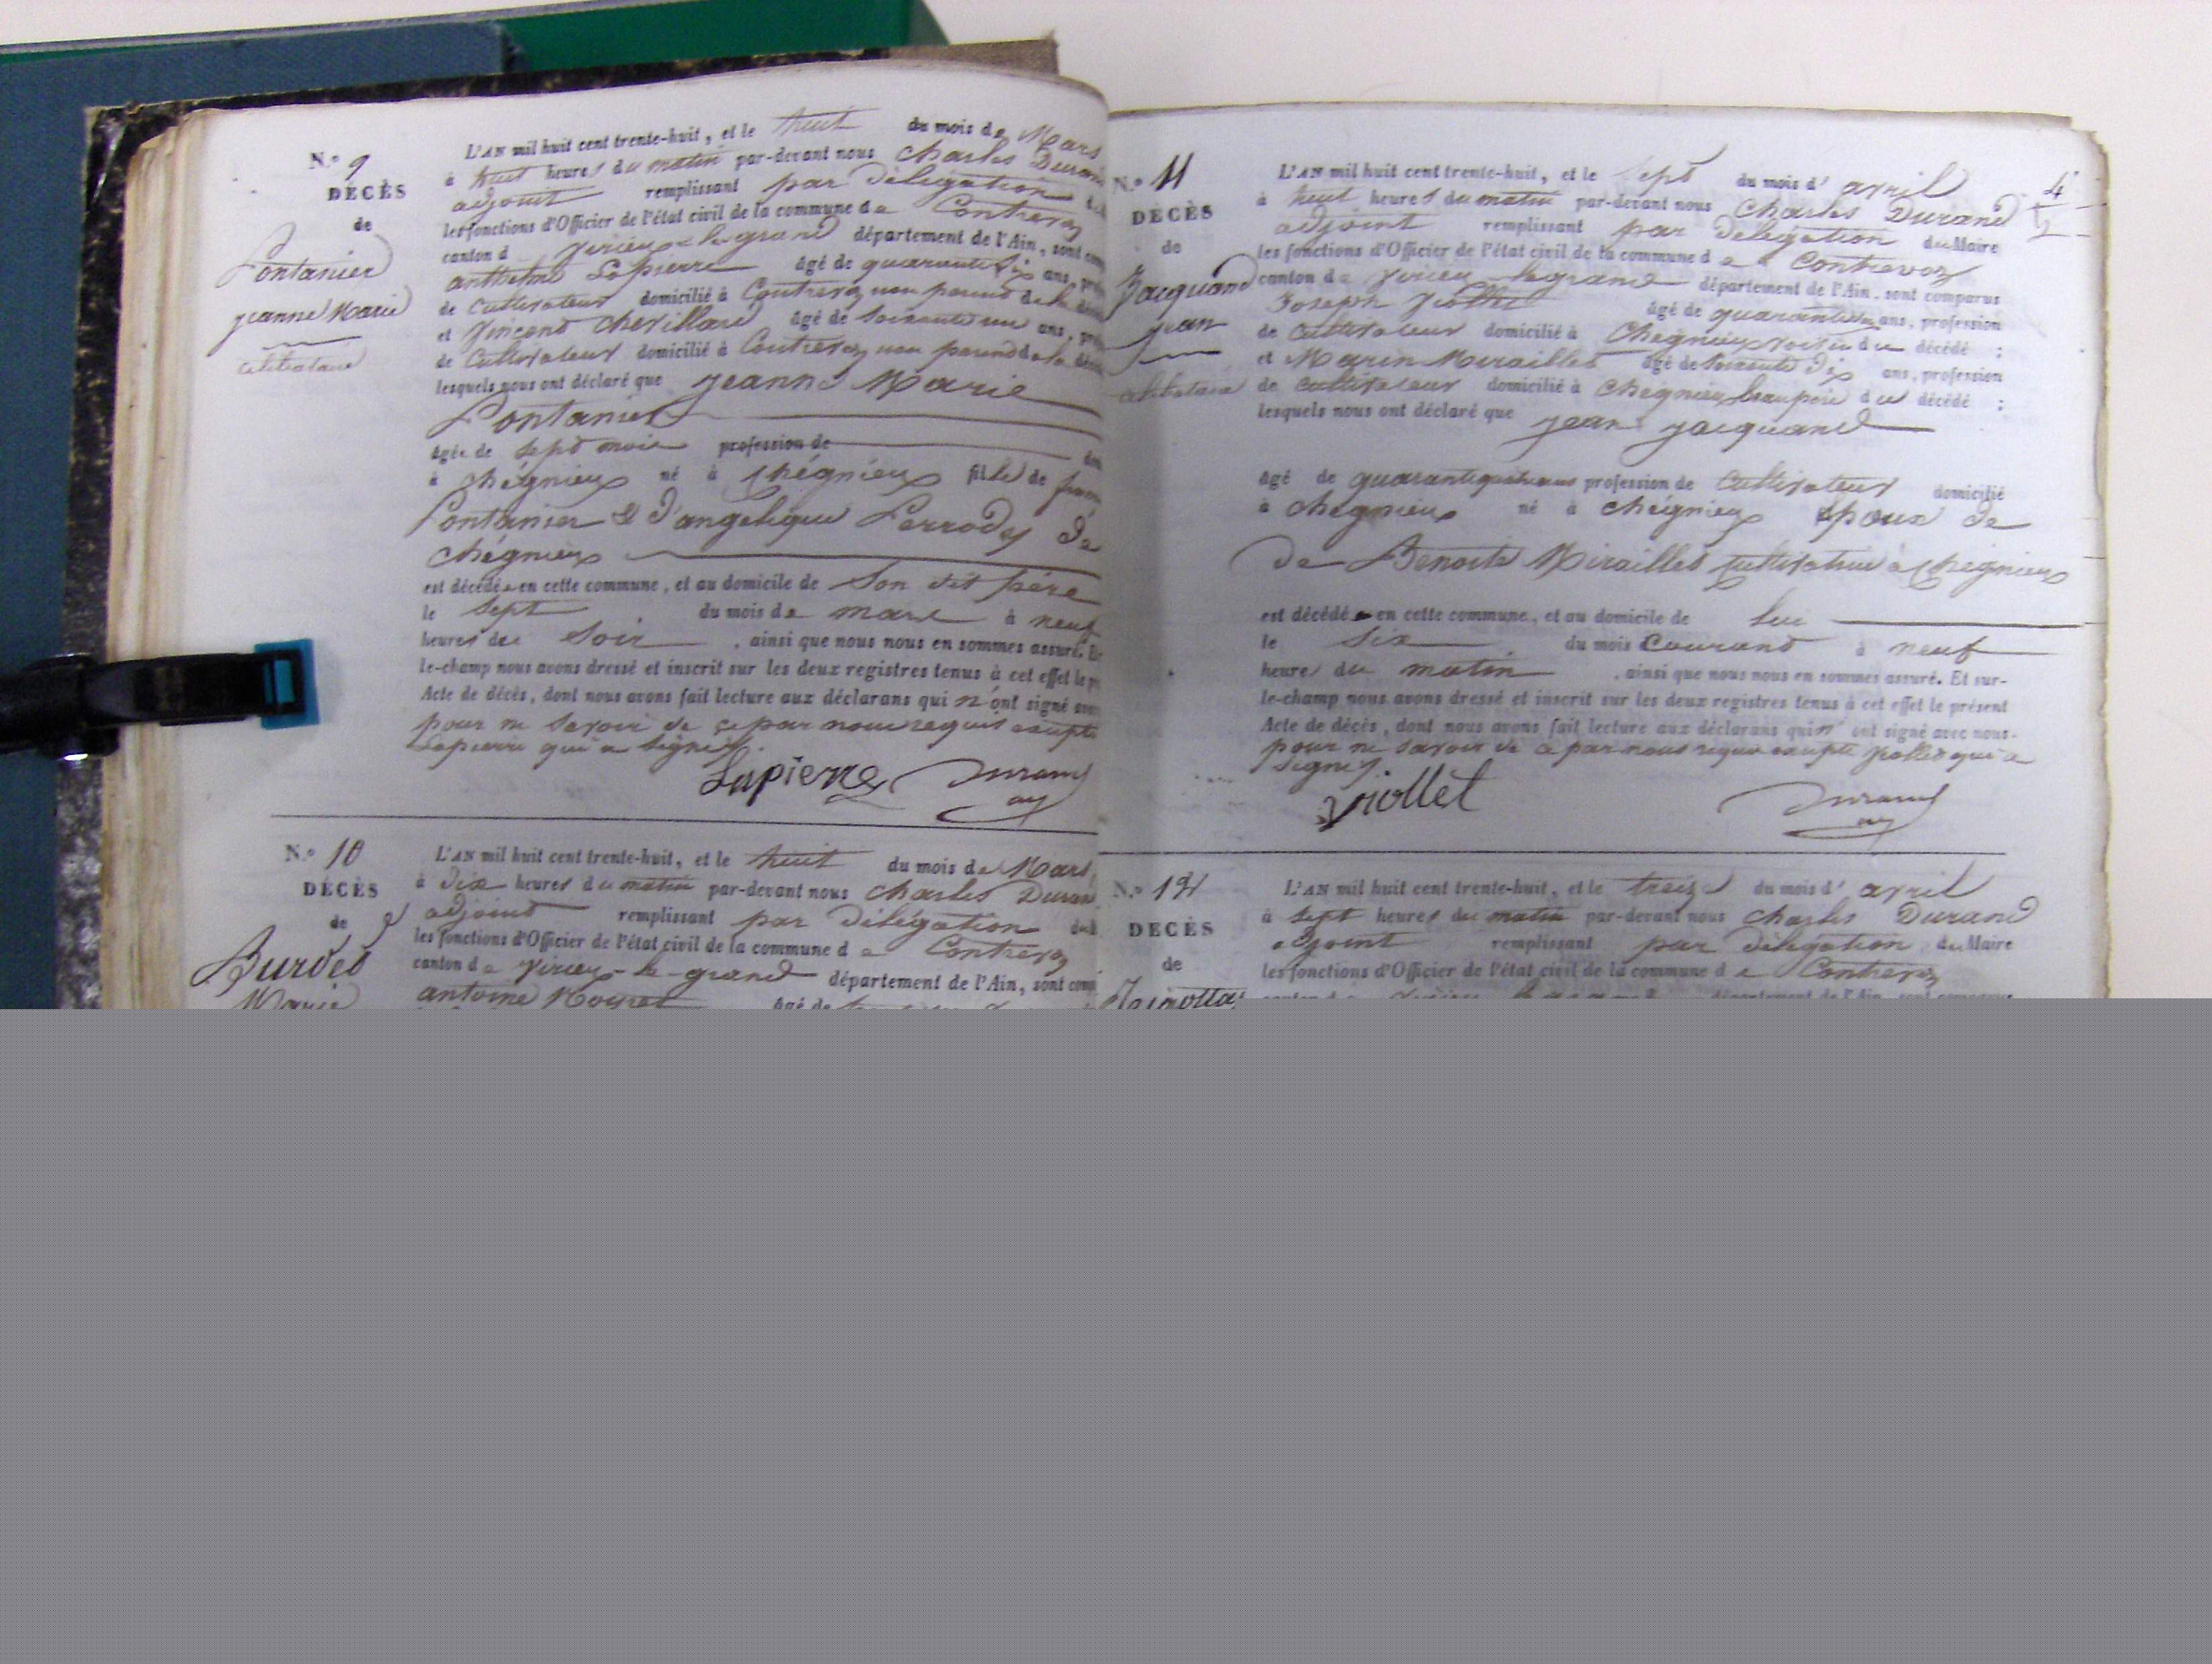 N.º 9
DÉCÈS
de
Pontanier
jeanne Marie
célibataire
L'AN mil huit cent trente-huit, et le huit du mois de Mars
à huit heures du matin par-devant nous Charles Duran
adjoint remplissant par délégation
les fonctions d'Officier de l'état civil de la commune de Contrevoz
canton d virieu-le-grand département de l'Ain, sont com
anthelme Lapierre âgé de quarante six ans, pro
de Cultivateur domicilié à Contrevoz non parent de la
et Vincent Chevillard âgé de soixante un ans, pro
de Cultivateur domicilié à Contrevoz non parent de la
lesquels nous ont déclaré que jeanne Marie
Pontanier
âgée de sept mois profession de
à Chégnieux né à Chégnieux fille de
Pontanier & d'angelique Perrody de
Chégnieux
est décédée en cette commune, et au domicile de son dit père
le sept du mois de mars à neuf
heures du soir, ainsi que nous nous en sommes assuré. Et
le-champ nous avons dressé et inscrit sur les deux registres tenus à cet effet le p
Acte de décès, dont nous avons fait lecture aux déclarans qui n'ont signé avec
pour ne savoir de ce par nous requis excepté
Lapierre qui a signé.
Lapierre Durand
adj
N.º 10
DÉCÈS
de
Burdet
Marie
L'AN mil huit cent trente-huit, et le huit du mois de Mars
à dix heures du matin par-devant nous Charles Durand
adjoint remplissant par délégation
les fonctions d'Officier de l'état civil de la commune d e Contrevoz
canton de virieu-le-grand département de l'Ain, sont comp
antoine âgé de
N.º 11
DÉCÈS
de
Jacquand
jean
célibataire
4
L'AN mil huit cent trente-huit, et le sept du mois d'avril
à huit heures du matin par-devant nous Charles Durand
adjoint remplissant par délégation du Maire
les fonctions d'Officier de l'état civil de la commune d e Contrevoz
canton de virieu-le-grand département de l'Ain, sont comparus
Joseph Viollet âgé de quarante ans, profession
de Cultivateur domicilié à Chégnieux voisin du décédé ;
et Marin Miraillet âgé de soixante dix ans, profession
de Cultivateur domicilié à Chégnieux beaupère du décédé ;
lesquels nous ont déclaré que jean jacquand
âgé de quarante quatre ans profession de Cultivateur domicilié
à Chégnieux né à Chégnieux époux de
de Benoite Miraillet Cultivatrice à Chégnieux
est décédé en cette commune, et au domicile de lui
le six du mois Courant à neuf
heures du matin, ainsi que nous nous en sommes assuré. Et sur-
le-champ nous avons dressé et inscrit sur les deux registres tenus à cet effet le présent
Acte de décès, dont nous avons fait lecture aux déclarans qui n'ont signé avec nous
pour ne savoir de ce par nous requis excepté Viollet qui a
signé.
Viollet Durand
adj
N.º 12
DÉCÈS
de
L'AN mil huit cent trente-huit, et le treize du mois d'avril
à sept heures du matin par-devant nous Charles Durand
adjoint remplissant par délégation du Maire
les fonctions d'Officier de l'état civil de la commune d e Contrevoz